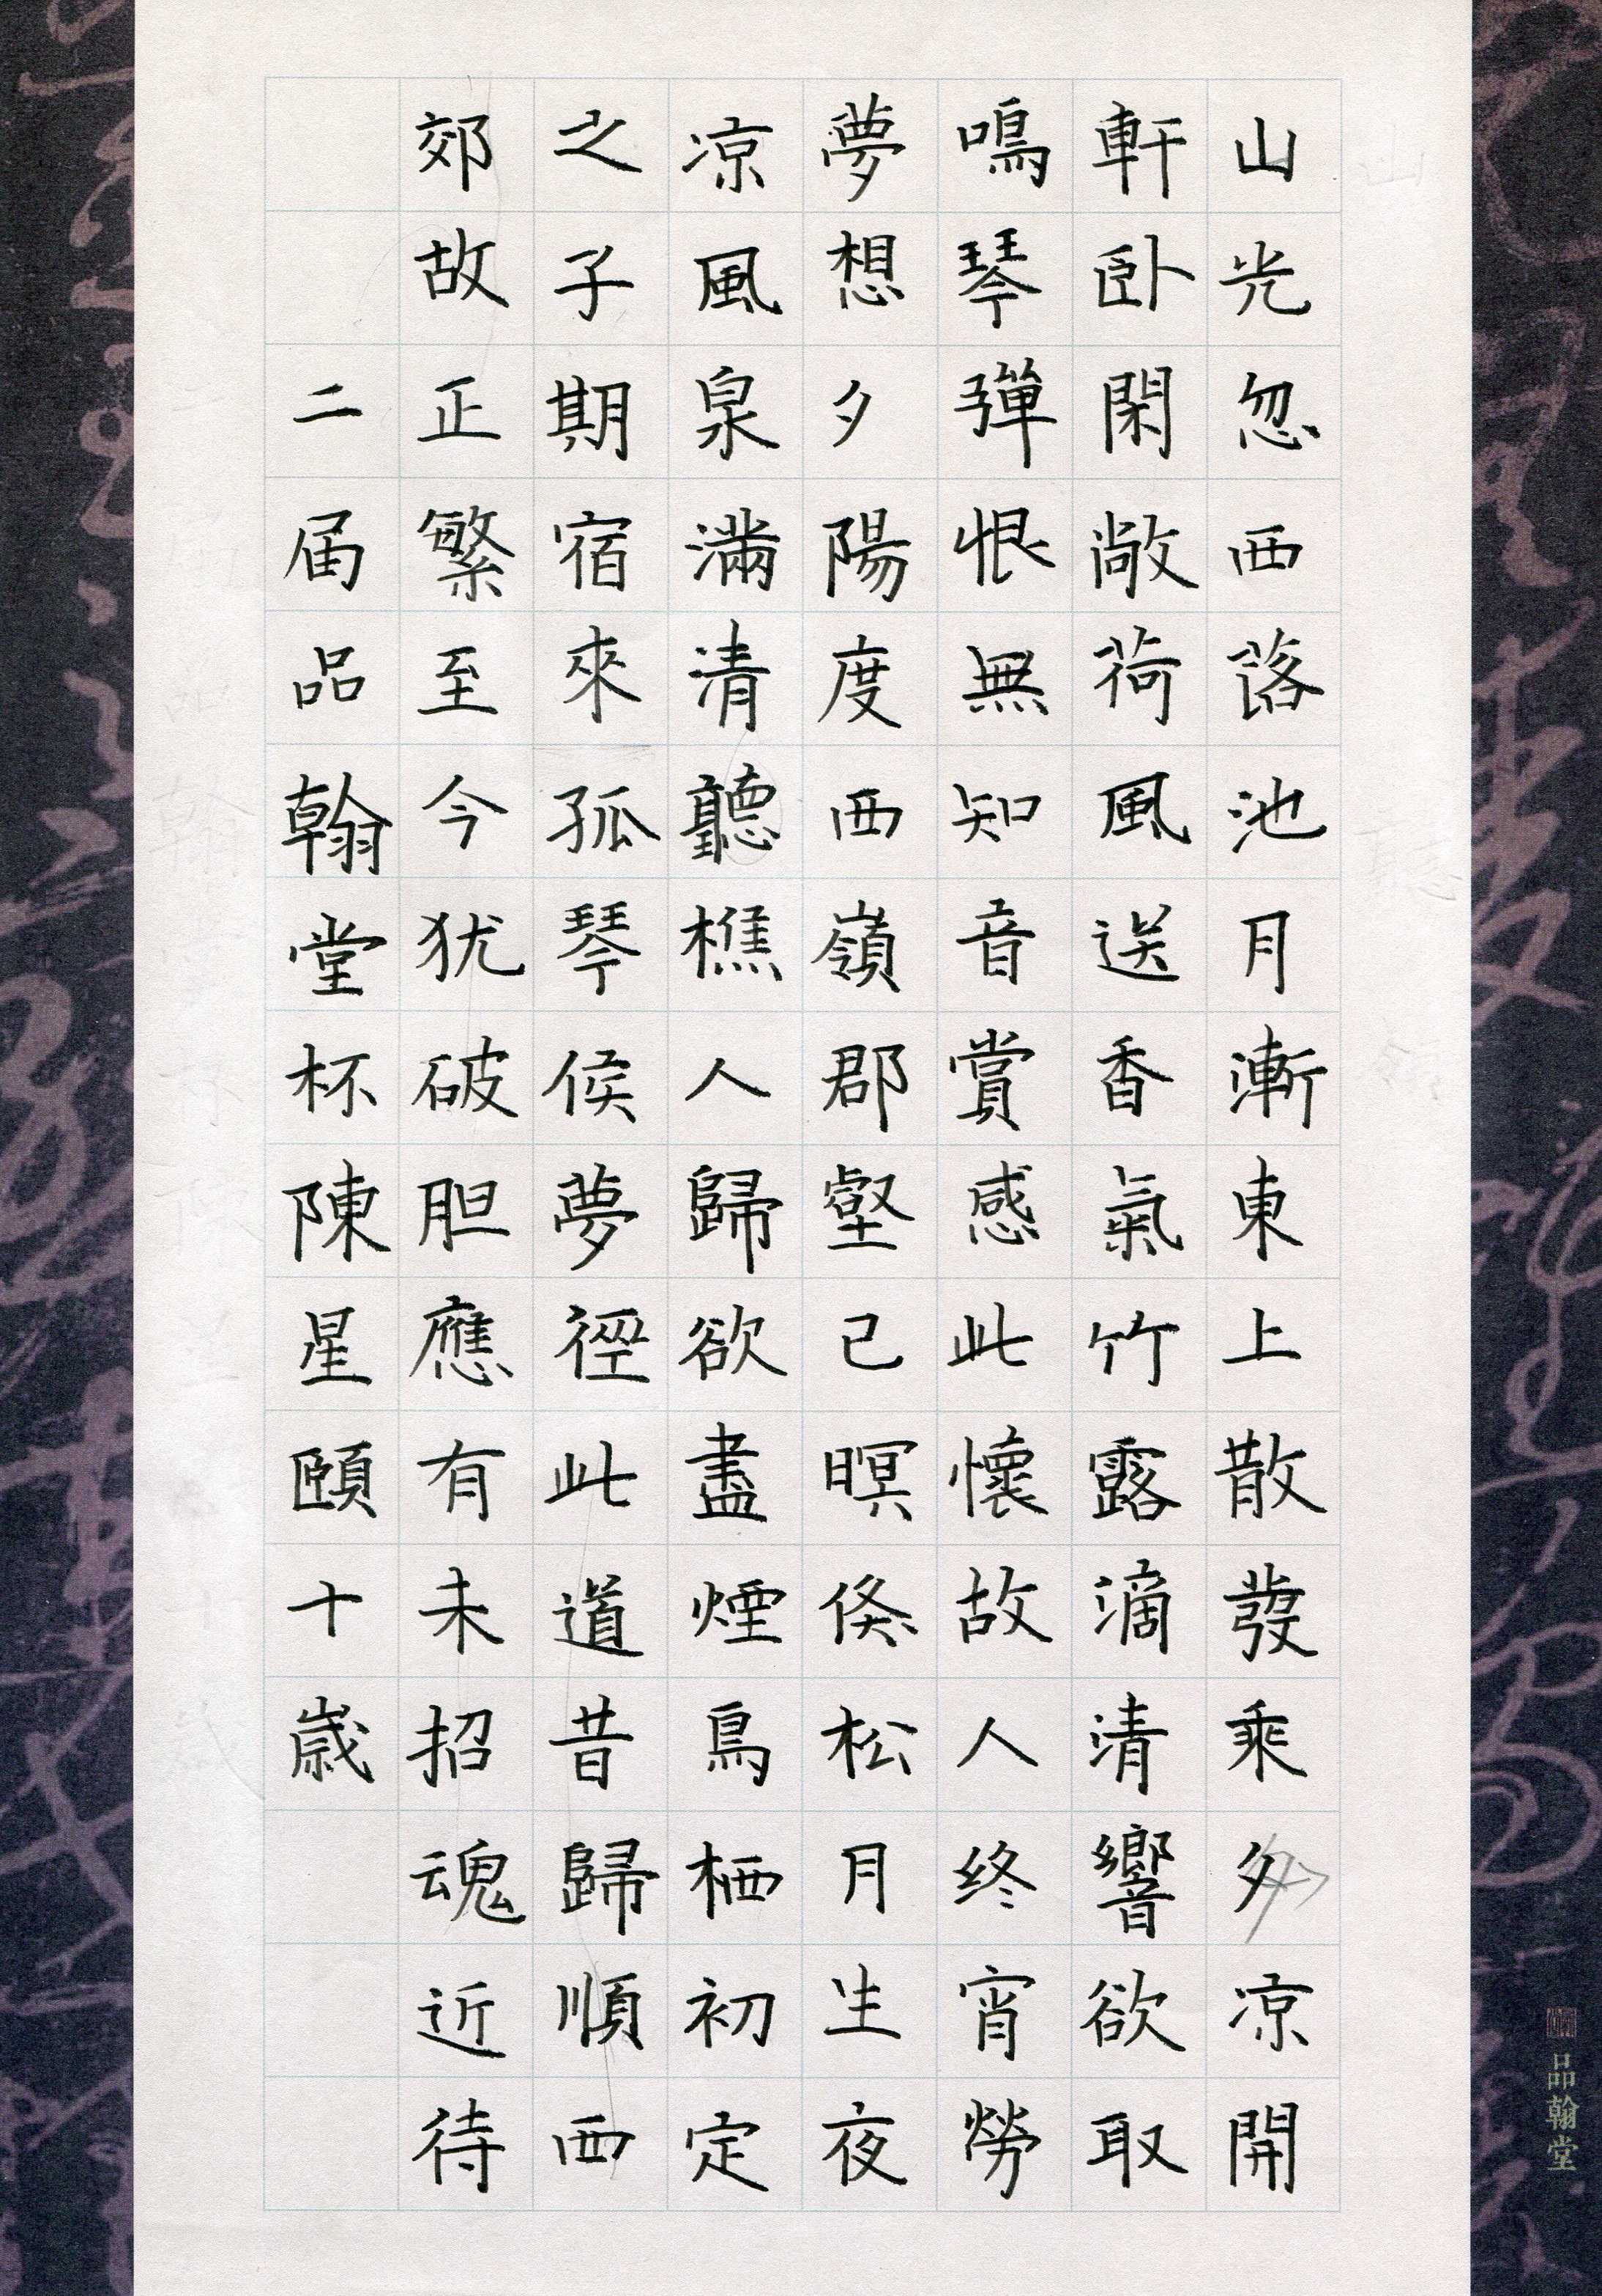 山光忽西落池月漸東上散發乘夕凉開
軒卧閑敞荷風送香氣竹露滴清響欲取
鳴琴彈恨無知音賞感此懷故人终宵勞
夢想夕陽度西嶺郡壑已暝倏松月生夜
凉風泉滿清聽樵人歸欲盡煙鳥栖初定
之子期宿來孤琴侯夢徑此道昔歸順西
郊故正繁至今犹破胆應有未招魂近待
二届品翰堂杯陳星頤十歲
品翰堂